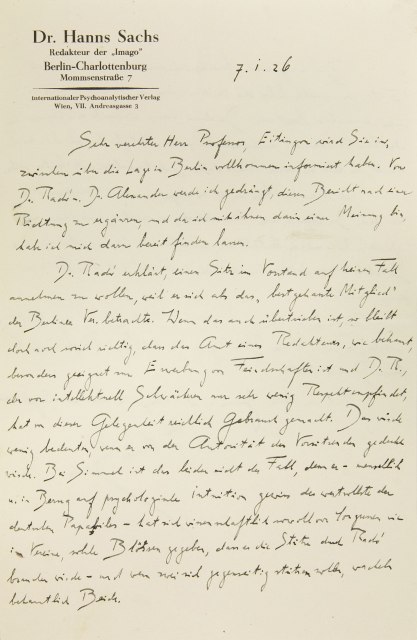 Dr. Hanns Sachs
Redakteur der „Imago"
Berlin-Charlottenburg
Mommsenstraße 7
Internationaler Psychoanalytischer Verlag
Wien, VII. Andreasgasse 3
7. I. 26
Sehr verehrter Herr Professor, Eitingon wird Sie in-
zwischen über die Lage in Berlin vollkommen informiert haben. Von
Dr. Radó u. Dr. Alexander werde ich gedrängt, diesen Bericht nach einer
Richtung zu ergänzen, und da ich mit ihnen darin einer Meinung bin,
hab ich mich dazu bereit finden lassen.
Dr. Radó erklärt, einen Sitz im Vorstand auf keinen Fall
annehmen zu wollen, weil er sich als das „bestgehasste Mitglied"
der Berliner Ver. betrachte. Wenn das auch übertrieben ist, so bleibt
doch noch soviel richtig, dass das Amt eines Redakteurs, wie bekannt,
besonders geeignet zur Erwerbung von Feindschaften ist und Dr. R.,
der vor intellektuell Schwächeren nur sehr wenig Respekt empfindet,
hat von dieser Gelegenheit reichlich Gebrauch gemacht. Das würde
wenig bedeuten, wenn er von der Autorität des Vorsitzenden gedeckt
würde. Bei Simmel ist das leider nicht der Fall, denn er - menschlich
u. in Bezug auf psychologische Intuition gewiss der wertvollste der
deutschen - hat sich wissenschaftlich sowohl wie
im Vereine, solche Blößen gegeben, dass er die Stütze durch Radó
brauchen würde - und wenn zwei sich gegenseitig stützen wollen, wackeln
bekanntlich Beide.